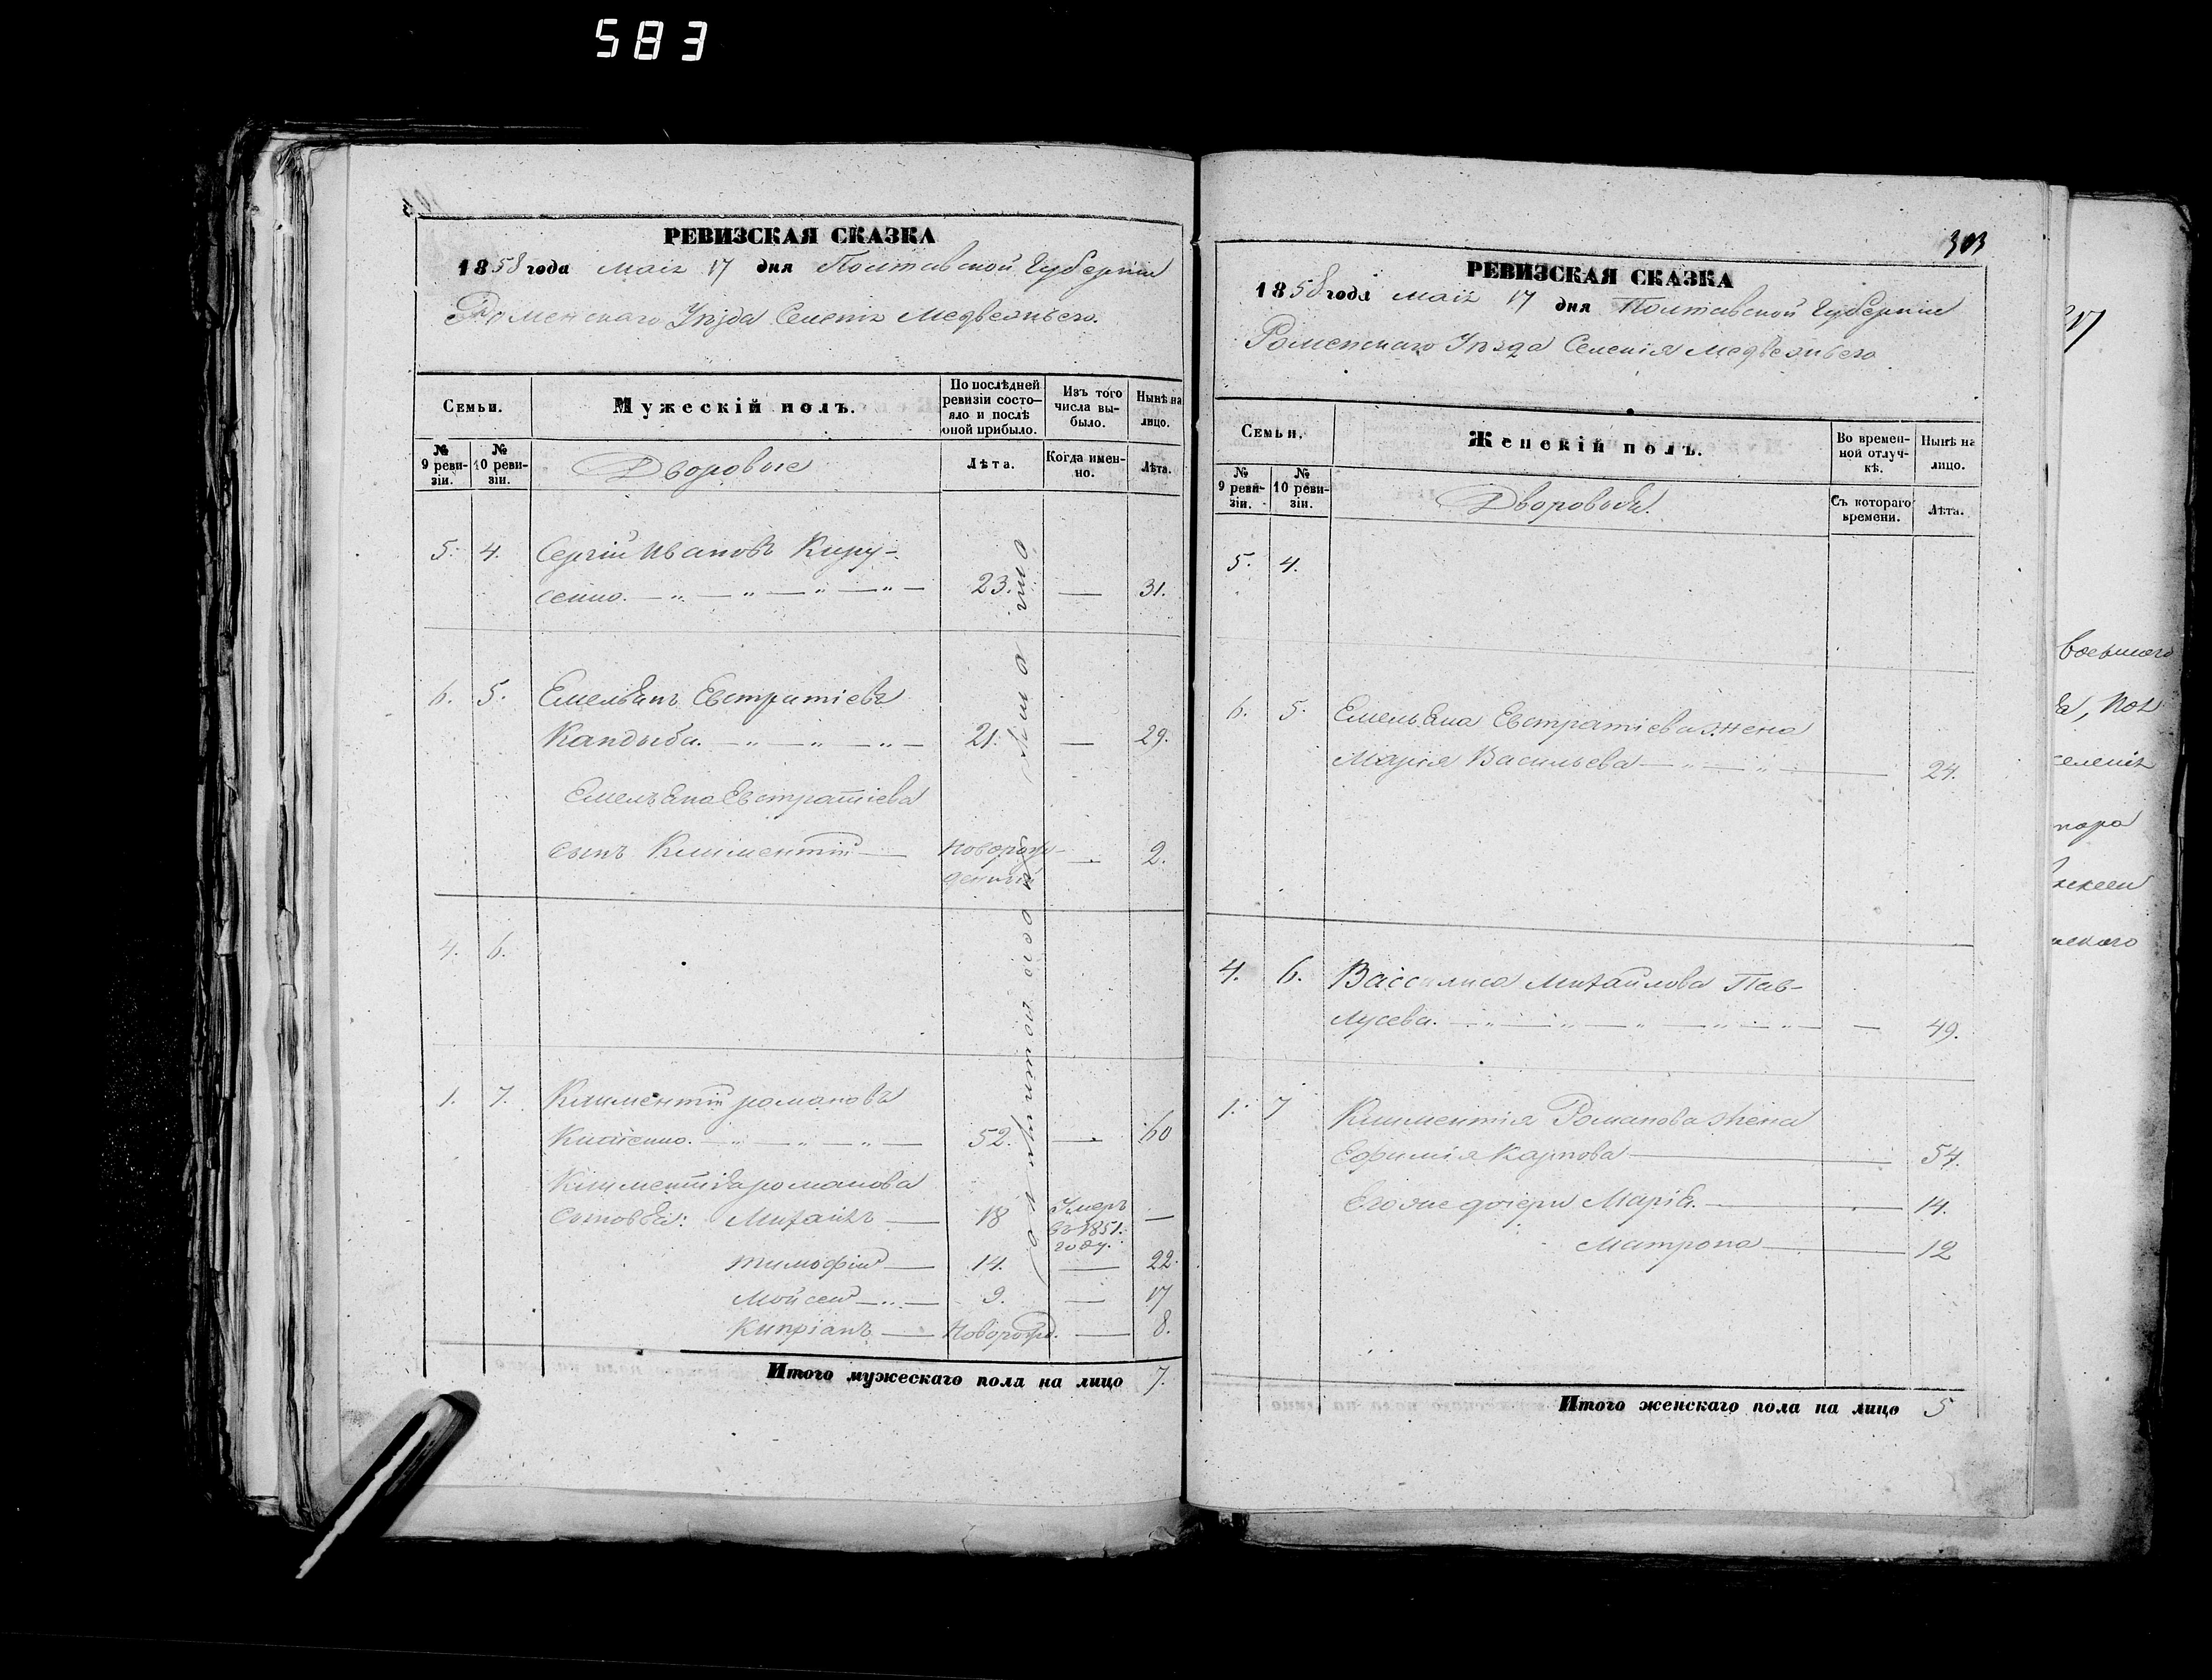 583
РЕВИЗСКАЯ СКАЗКА
1858 года маія 17 дня Полтавской Губерніи
Роменскаго Уѣзда Селенія Медвежьего.
Семьи.
Мужескій полъ.
По послѣдней ревизіи состояло и послѣ оной прибыло.
Изъ того числа выбыло.
Нынѣ на лицо.
№ 9 ревизіи.
№ 10 ревизіи.
Дворовые
Лѣта.
Когда именно.
Лѣта.
5. 4. Сергій Ивановъ Киру-
сенко. 23. — 31.
6. 5. Емельянъ Евстратіевъ
Кандыба. 21. — 29.
Емельяна Евстратіева
сынъ Климентій — Новорож-
денный — 2.
4. 6.
1. 7. Климентій романовъ
52. — 60
Климентія романова
сыновья: Михаилъ — 18 Умеръ —
въ 1851.
году.
тимофій — 14. — 22.
Мойсей — 9. — 17
Кипріанъ — Новорожд. — 8.
Итого мужескаго пола на лицо 7.
303
РЕВИЗСКАЯ СКАЗКА
1858 года маія 17 дня Полтавской Губерніи
Роменскаго Уѣзда Селенія Медвежьего
Семьи.
Женскій полъ.
Во временной отлучкѣ.
Нынѣ на лицо.
№ 9 ревизіи.
№ 10 ревизіи.
Дворовыя.
Съ котораго времени.
Лѣта.
5. 4.
6. 5. Емельяна Евстратіева жена
Марія Васильева — 24.
4. 6. Вассилиса Михайлова Пав-
лусева. — 49.
1. 7 Климентія Романова жена
Ефимія Карпова — 54.
Его же дочери Марія. — 14.
Матрона — 12
Итого женскаго пола на лицо 5
317
восьмого
селенія